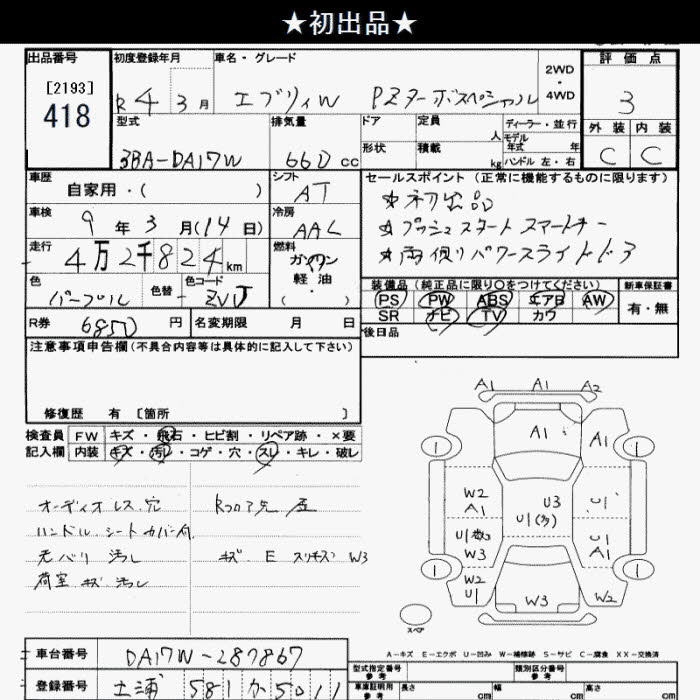 ★初出品★
出品番号 初度登録年月 車名・グレード 2WD・4WD 評価点
[2193]
418 R4 3月 エブリィW PZターボスペシャル 3
型式 排気量 ドア 定員 人 ディーラー・並行 外装 内装
3BA-DA17W 660 cc 形状 積載 kg モデル年式 年 ハンドル 左・右 C C
車歴 自家用・( ) シフト AT セールスポイント (正常に機能するものに限ります)
車検 9年3月(14日) 冷房 AAC ★初出品
★プッシュスタート スマートキー
走行 4万2千824km 燃料 ガソリン 軽油 ・( ) ★両側パワースライドドア
色 パープル 色替 色コード ZVJ 装備品 (純正品に限り○をつけてください) 新車保証書
PS PW ABS エアB AW 有・無
SR ナビ TV カワ
R券 6850円 名変期限 月 日 後日品
注意事項申告欄(不具合内容等は具体的に記入して下さい)
修復歴 有 [箇所 ]
検査員 FW キズ・飛石・ヒビ割・リペア跡・×要
記入欄 内装 キズ・汚レ・コゲ・穴・スレ・キレ・破レ
オーディオレス.穴 Rフロア先
ハンドル.シートカバー付
汚レ キズ E W3
荷室 キズ 汚レ
A1 A1 A2
A1 A1
1 1
W2 A1 U3 U1(多) U1
W3 U1 A1
1 1
W2 U1 W3 W2
スペア
A-キズ E-エクボ U-凹み W-補修跡 S-サビ C-腐食 XX-交換済
車台番号 DA17W-287867 型式指定番号 参考 類別区分番号 参考
登録番号 土浦 581 か 5011 車庫証明用 参考 長さ cm 幅 cm 高さ cm